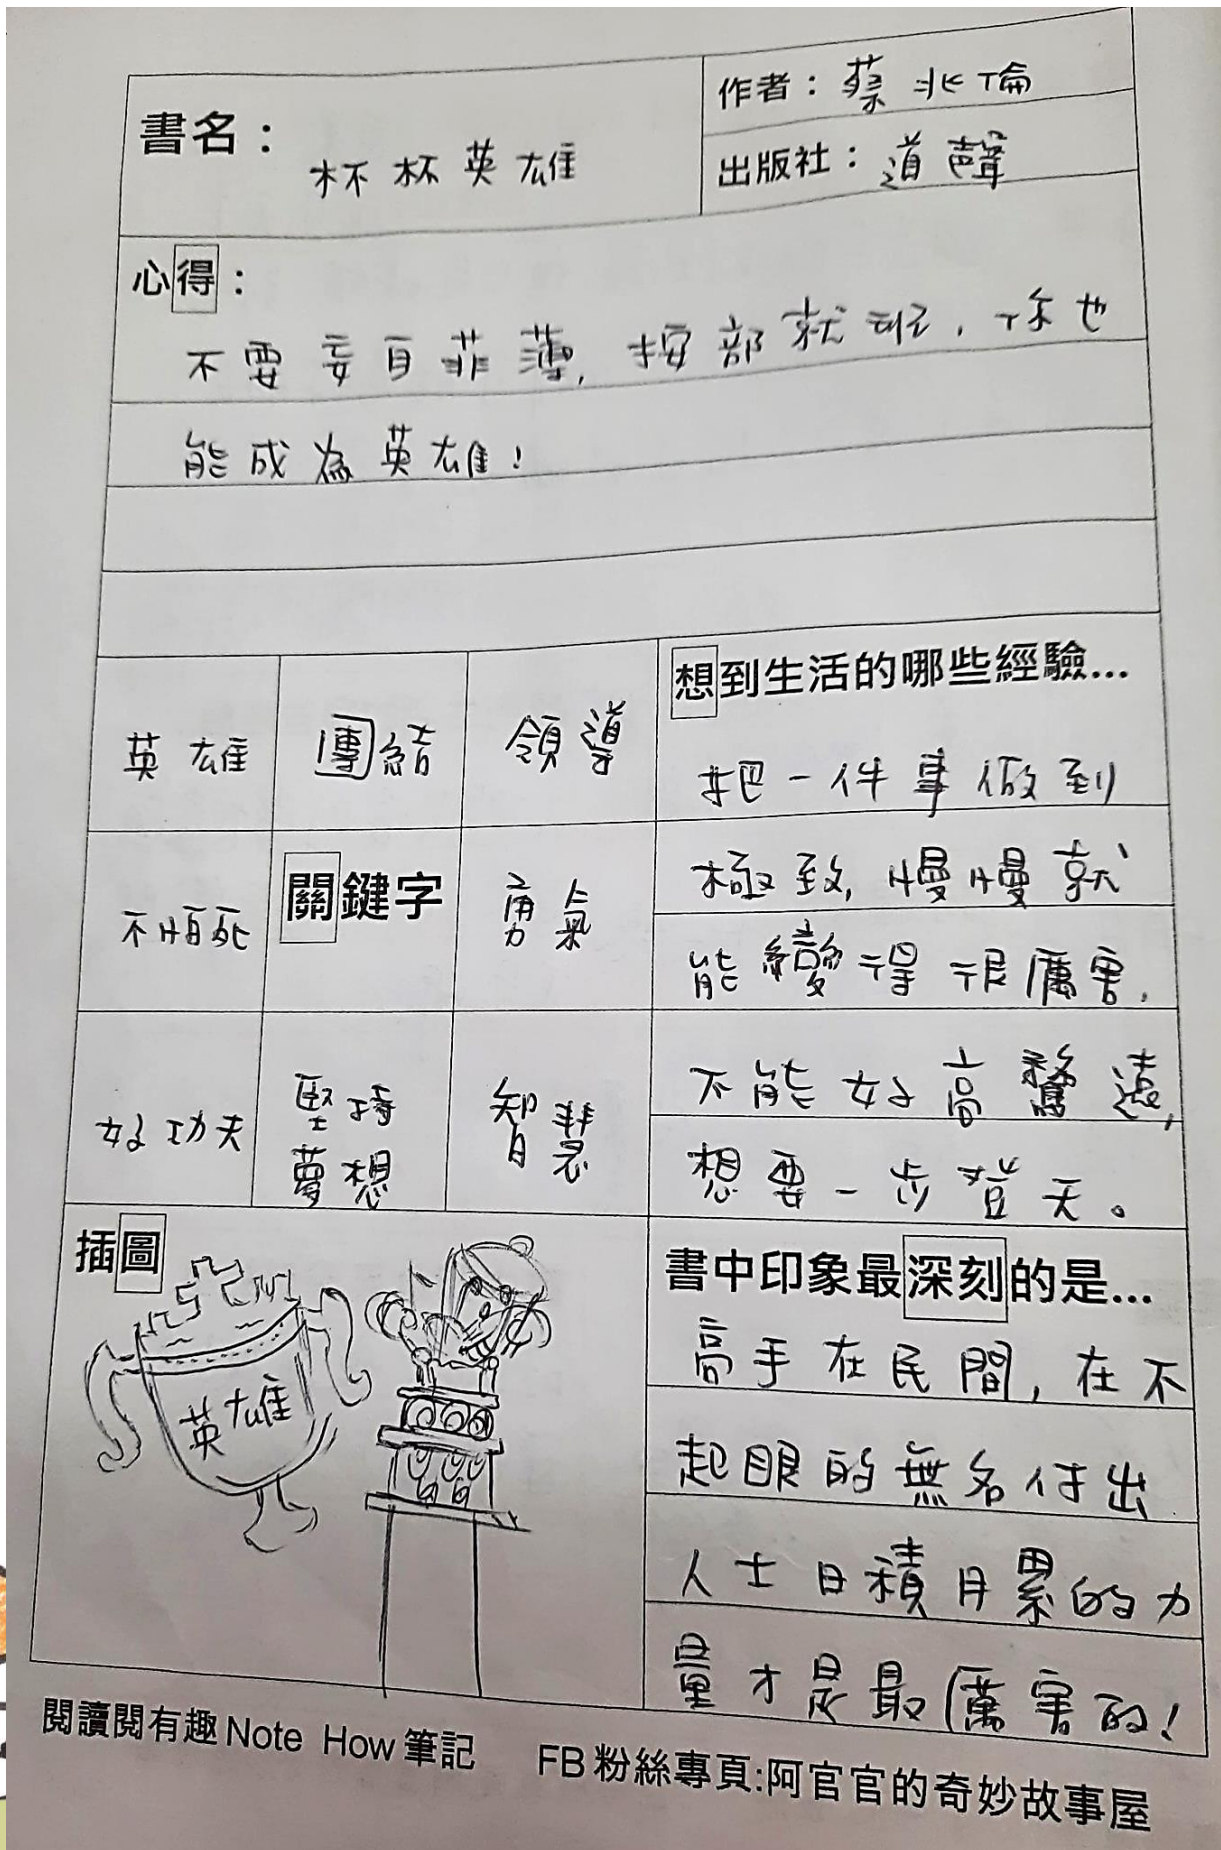 書名：
杯杯英雄
作者：蔡兆倫
出版社：道聲
心得：
不要妄自菲薄,按部就班,你也
能成為英雄!
英雄
團結
領導
不怕死
關鍵字
勇氣
好功夫
堅持
夢想
智慧
想到生活的哪些經驗...
把一件事做到
極致,慢慢就
能變得很厲害,
不能好高騖遠,
想要一步登天。
插圖
英雄
書中印象最深刻的是...
高手在民間,在不
起眼的無名付出
人士日積月累的力
量才是最厲害的!
閱讀閱有趣Note How筆記 FB粉絲專頁:阿官官的奇妙故事屋